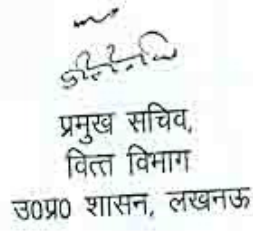 प्रमुख सचिव,
वित्त विभाग
उ0प्र0 शासन, लखनऊ